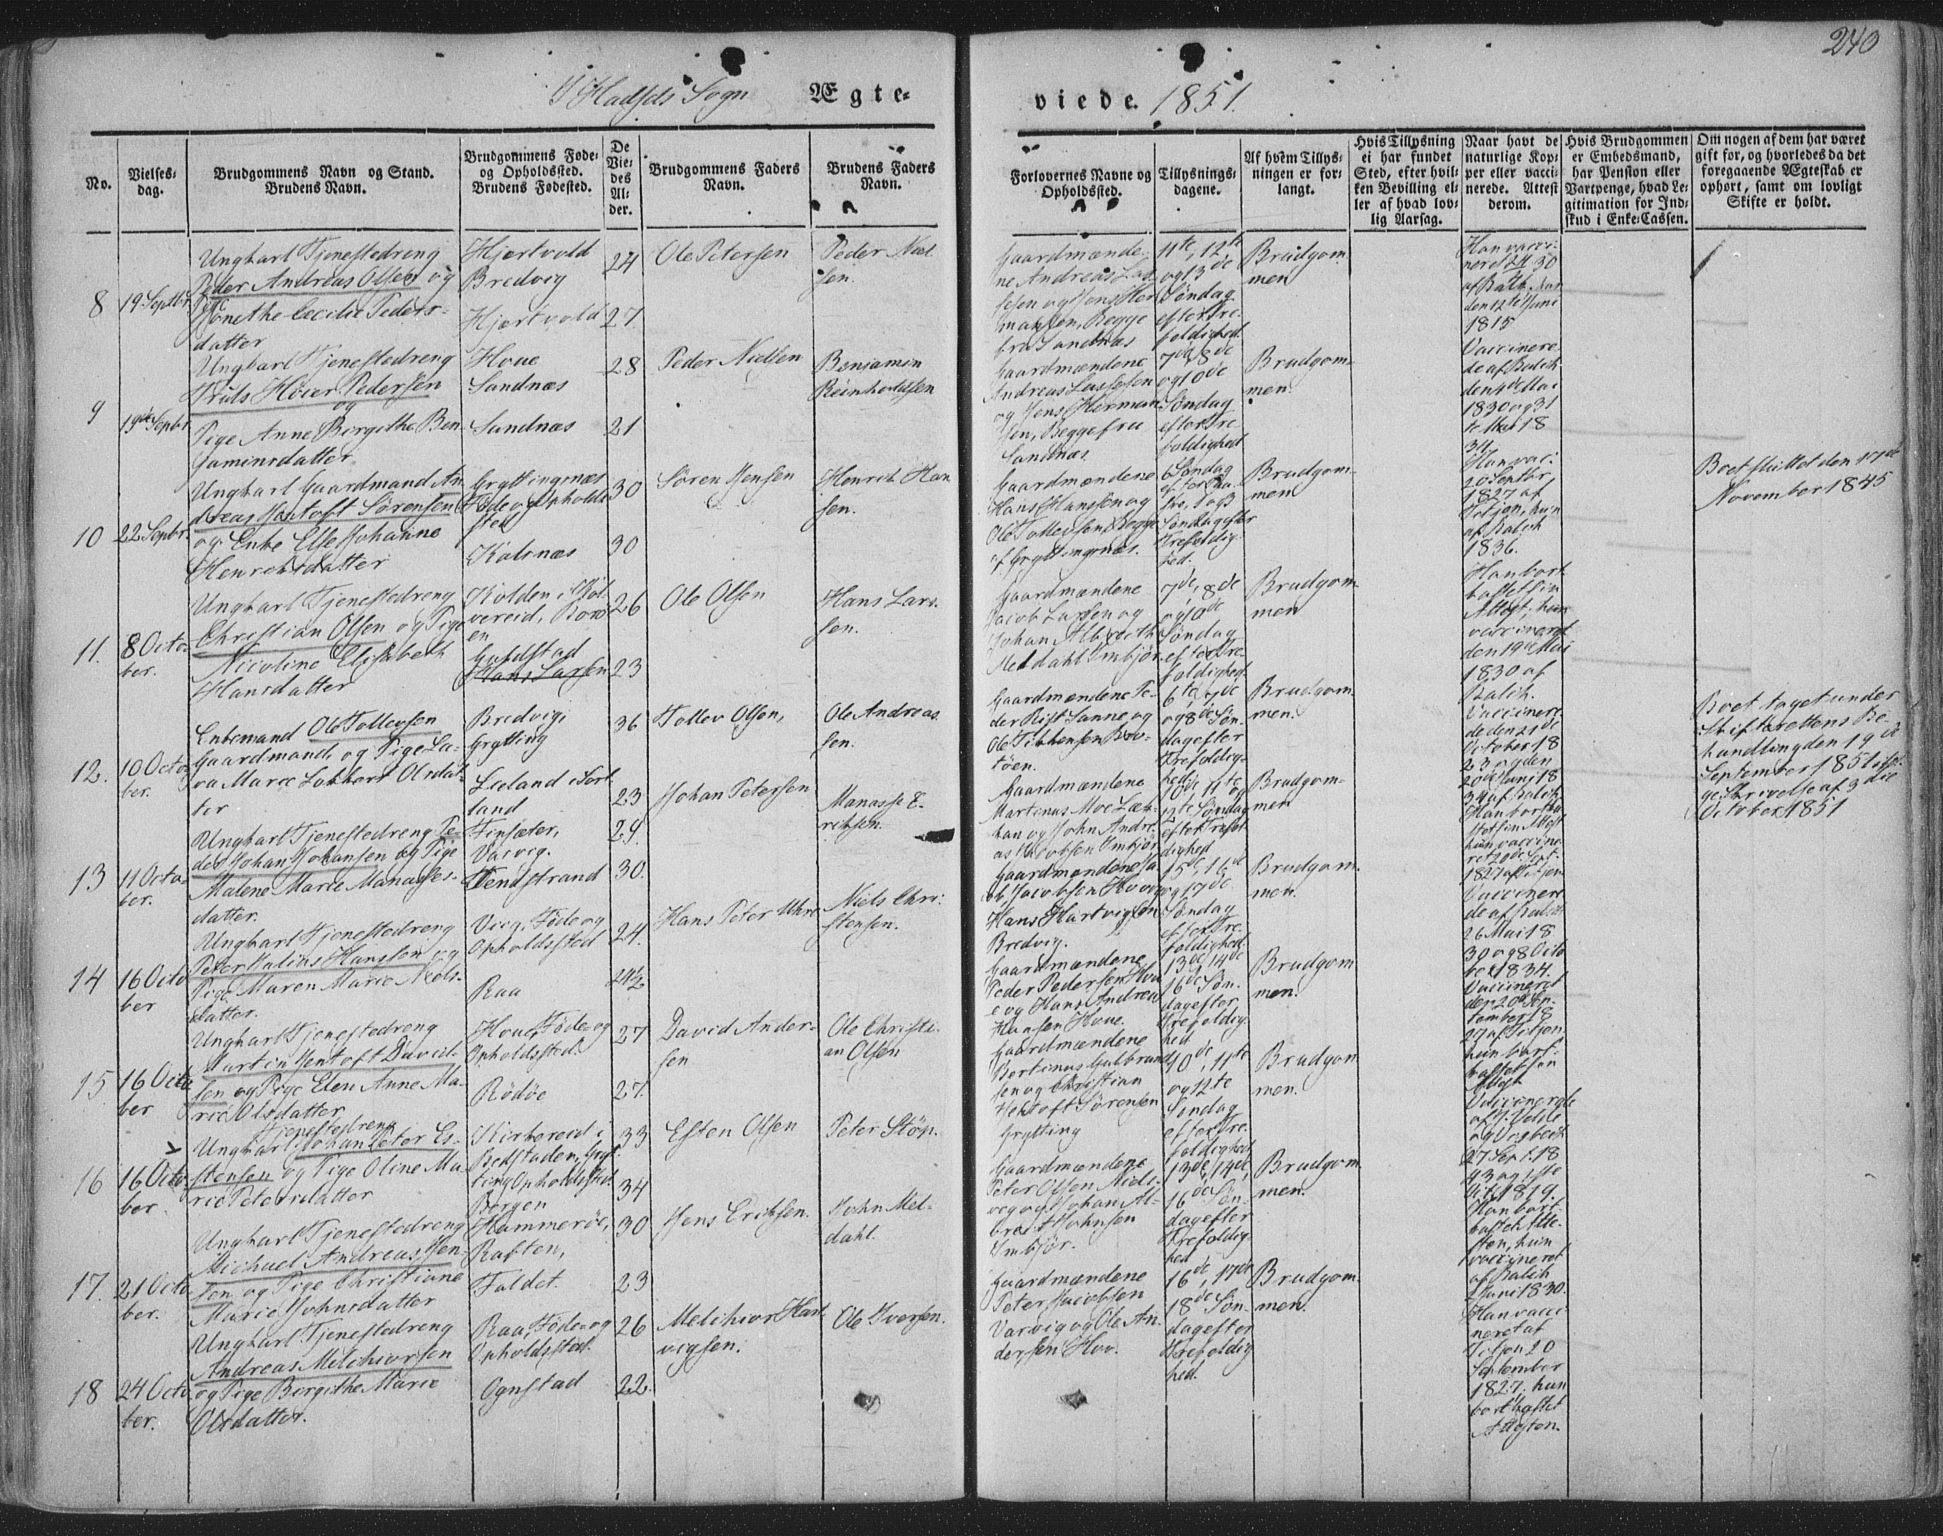 240
I Hadsels Sogn Ægte-
viede. 1851.
No.
Vielses-
dag.
Brudgommens Navn og Stand.
Brudens Navn.
Brudgommens Føde-
og Opholdssted.
Brudens Fødested.
De
Vie-
des
Al-
der.
Brudgommens Faders
Navn.
Brudens Faders
Navn.
Forlovernes Navne og
Opholdssted.
Tillysnings-
dagene.
Af hvem Tillys-
ningen er for-
langt.
Hvis Tillysning
ei har fundet
Sted, efter hvil-
ken Bevilling el-
ler af hvad lov-
lig Aarsag.
Naar havt de
naturlige Kop-
per eller vacci-
nerede. Attest
derom.
Hvis Brudgommen
er Embedsmand,
har Pension eller
Vartpenge, hvad Le-
gitimation for Ind-
skud i Enke-Cassen.
Om nogen af dem har været
gift før, og hvorledes da det
foregaaende Ægteskab er
ophørt, samt om lovligt
Skifte er holdt.
8
19 Septbr
Ungkarl Tjenestedreng
Peder Andreas Olsen og
Cecilie Peders-
datter
Hjortvold
Bredvig
Hjortvold
24
27
Ole Petersen
Peder Niel-
sen
Gaardmænde-
ne Andreas Las-
sesen og Jens Her-
mansen, Begge
fra Sandnæs
11te, 12te
og 13de
Søndag
efter Tre-
foldighed
Brudgom-
men
Han vacci-
neret
den 12te Juni
1815
9
19de Sepbr
Ungkarl Tjenestedreng
Truls Høier Pedersen
og
Pige Anne Birgithe Ben-
jaminsdatter
Hove
Sandnæs
Sandnæs
28
21
Peder Nielsen
Benjamin
Reinholdtsen
Gaardmændene
Andreas Lassesen
og Jens Herman-
sen, Begge fra
Sandnæs
7de, 8de
og 10de
Søndag
efter Tre-
foldighed
Brudgom-
men.
Vaccinere-
de af Balch
den 4de Mai
1830 og 31
te Mai 18
34.
10
22 Sepbr.
Ungkarl Gaardmand An-
dreas Jentoft Sørensen
og Enke Else Johanne
Henrichsdatter
Gryttingnæs
Føde og Opholds-
sted
Kalsnæs
30
30
Søren Jensen
Henrik Han-
sen.
Gaardmændene
Hans Hanssen og
Ole Tollevsen Begge
af Gryttingnæs.
Søndag
Søndag efter
Trefoldig-
hed.
Brudgom-
men
Han vac:
20 Septbr
1827 af
hun
af Balch
1836.
Boet sluttet den 17de
November 1845
11.
8 Octo-
ber.
Ungkarl Tjenestedreng
Christian Olsen og Pige
Nicoline Elisabeth
Hansdatter
Guldstad
Hans Larsen
26
23
Ole Olsen
Hans Lars-
sen.
Gaardmændene
Jacob Larsen og
Johan Albreth
Meldahl Imbjør.
7de, 8de
og 10de
Søndag
efter Tre-
foldighed
Brudgom-
men
Han bort-
kastet sin
Attest; hun
vaccineret
den 19de Mai
1830 af
Balch.
12.
10 Octo-
ber.
Enkemand Ole Tollevsen
Gaardmand, og Pige La-
va Marie Lockert Olsdat-
ter
Bredvig,
Grytting
Liland i Sort-
land
36
23
Tollev Olsen,
Ole Andreas-
sen.
Gaardmændene Pe-
der Rist Sanne og
6te, 7de
og 8de Søn-
dag efter
Trefoldig-
hed
Brudgom-
men.
Vaccinere-
de den 21de
October 18
23 og den
20de Juni 18
34 af Balch
Boet taget under
Skifterettens Be-
handling den 19de
September 1851 iføl-
ge Skrivelse af 3die
October 1851
13
11 Octo-
ber.
Ungkarl Tjenestedreng Pe-
der Johan Johansen og Pige
Malene Marie Manasses-
datter.
Finsæter,
Varvig.
Vendstrand
29.
30.
Johan Petersen
Manasse E-
riksen.
Gaardmændene
Martinus Moe
og John Andre-
as Jacobsen Imbjør
10de, 11te og
12te Søndag
efter Trefol-
dighed
Brudgom-
men
Han bortka-
stet sin Attest
hun vaccine-
ret 20de Sept.
1827
14
16 Octo-
ber
Ungkarl Tjenestedreng
Peter Malins Hansen og
Pige Maren Marie Niels-
datter.
Vig, Føde og
Opholdssted
Raa
24.
24½
Hans Peter
Niels Chri-
stensen.
Gaardmændene Ja-
cob Jacobsen Hov og
Hans Hartvigsen
Bredvig.
15de, 16de
og 17de
Søndag
efter Tre-
foldighed.
Brudgom-
men.
Vaccinere-
de af Balch
26 Mai 18
30 og 8 Octo-
ber 1834.
15.
16 Octo-
ber
Ungkarl Tjenestedreng
Martin Jentoft David-
sen og Pige Elen Anne Ma-
rie Olsdatter
Hove, Føde og
Opholdssted.
Rödöe
27
27.
David Ander-
sen
Ole Christi-
an Olsen
Gaardmændene
Peder Pedersen Hov-
e og Hans Andreas
Hansen Hove.
13de, 14de
16de Søn-
dag efter
Trefoldig-
hed
Brudgom-
men.
Vaccineret
den 20de Sep-
tember 18
27 af
hun bort-
kastet sin
Attest
16
16 Octo-
ber.
Tjenestedreng
Ungkarl Johan Peter Es-
tensen og Pige Oline Ma-
rie Petersdatter
Opholdssted
Bergen
33
34
Esten Olsen
Peter Støp.
Gaardmændene
Bertinus Gulbrand-
sen og Christian
Jentoft Sørensen
Grytting
10de, 11te
og 12te
Søndag
efter Tre-
foldighed
Brudgom-
men.
27 Sept 18
17.
21 Octo-
ber.
Ungkarl Tjenestedreng
Michael Andreas Jen-
sen og Pige Christiane
Marie Johnsdatter
Hammerøe,
Raften,
Faldet.
30
23
Jens Eriksen.
John Mel-
dahl.
Gaardmændene
Peter Olsen
og Johan Al-
bret Johnsen
Imbjør.
13de, 14de,
16de Søn-
dag efter
Trefoldig-
hed
Brudgom-
men.
Han bort-
kastet Atte-
sten, hun
vaccineret
af Balch
Juni 1830.
18
24 Octo-
ber.
Ungkarl Tjenestedreng
Andreas Melchiorsen
og Pige Birgithe Marie
Olsdatter.
Raa, Føde og
Opholdssted.
Ognstad
26
22.
Melchior Hart-
vigsen.
Ole Iversen.
Gaardmændene
Peter Jacobsen
Varvig og Ole An-
dersen Hov.
16de, 17de
18de Søn-
dag efter
Trefoldig-
hed.
Brudgom-
men.
Han vacci-
neret af
20
September
1827. hun
bortkastet
Attesten.